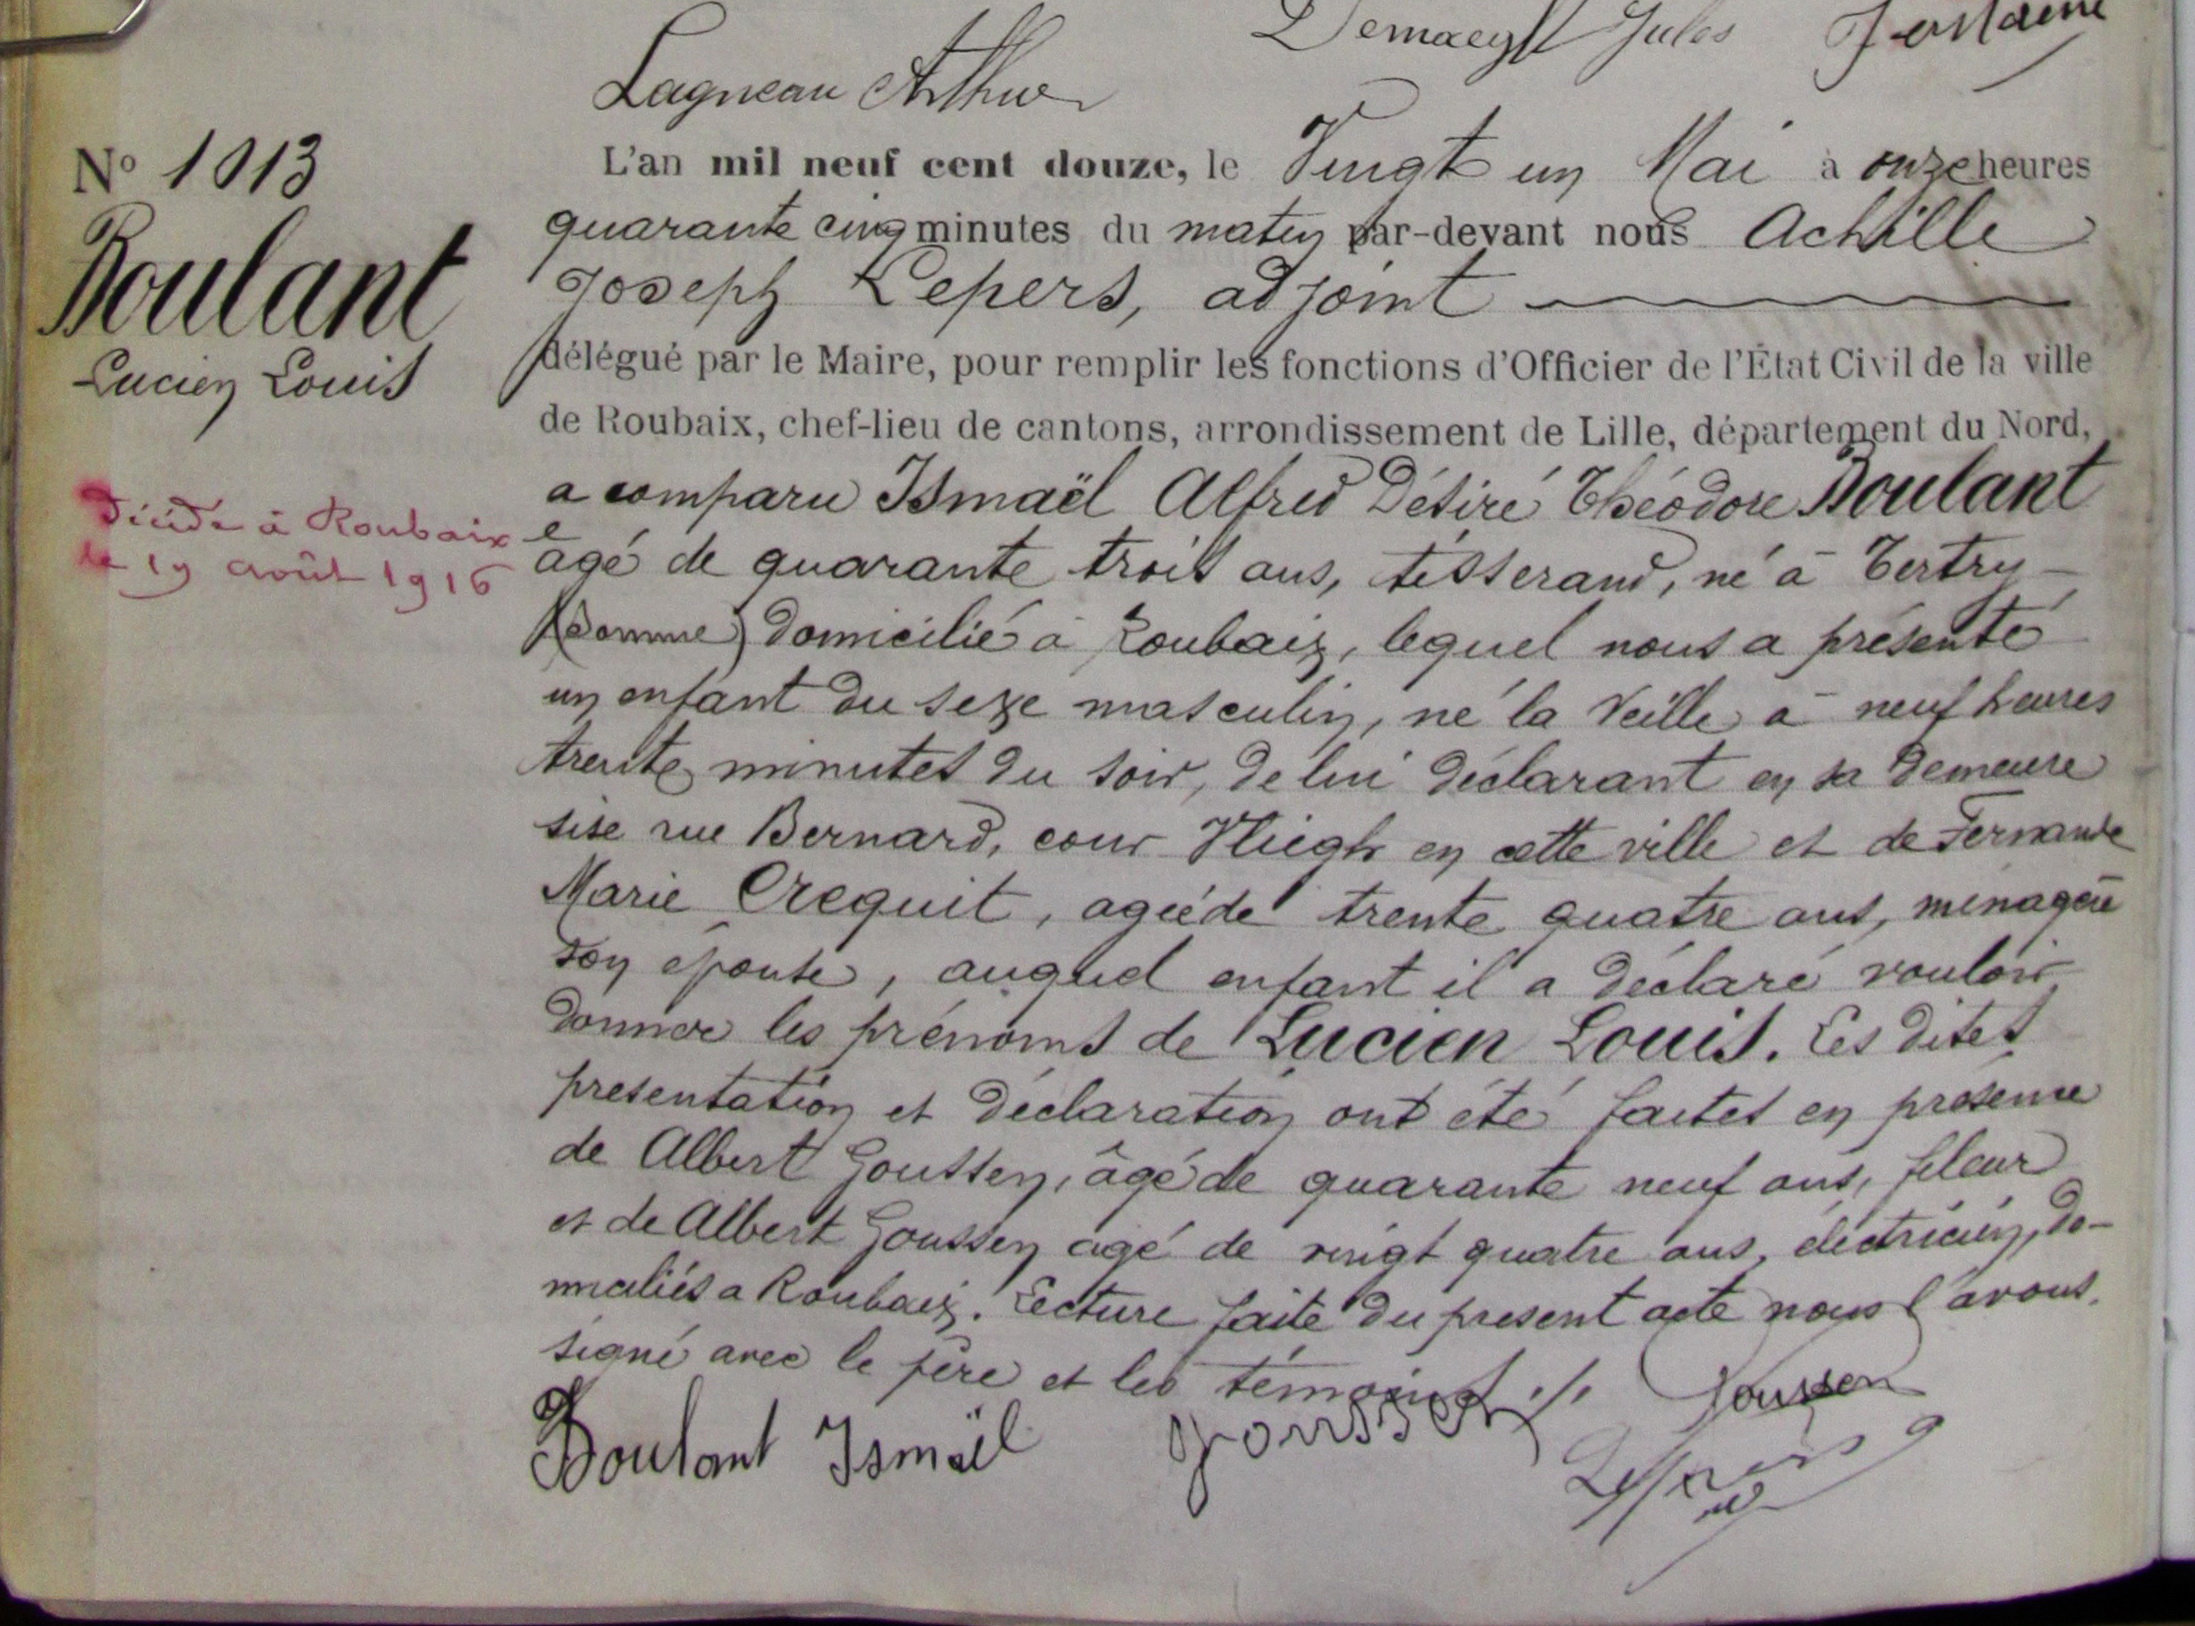 Demaeght Jules Fontaine
Lagneau Arthur
N° 1013
Boulant
Lucien Louis
Décédé à Roubaix
le 19 août 1916
L'an mil neuf cent douze, le Vingt un Mai à onze heures
quarante cinq minutes du matin par-devant nous Achille
Joseph Lepers, adjoint
délégué par le Maire, pour remplir les fonctions d'Officier de l'État Civil de la ville
de Roubaix, chef-lieu de cantons, arrondissement de Lille, département du Nord,
a comparu Ismaël Alfred Désiré Théodore Boulant
âgé de quarante trois ans, tisserand, né à Tertry
(Somme) domicilié à Roubaix, lequel nous a présenté
un enfant du sexe masculin, né la Veille à neuf heures
trente minutes du soir, de lui déclarant en sa demeure
sise rue Bernard, cour en cette ville et de Fernande
Marie Crequit, agée de trente quatre ans, ménagère
son épouse, auquel enfant il a déclaré vouloir
donner les prénoms de Lucien Louis. Les dites
présentation et déclaration ont été faites en présence
de Albert Goussen, âgé de quarante neuf ans, fileur
et de Albert Goussen agé de vingt quatre ans, électricien, do-
miciliés a Roubaix. Lecture faite du present acte nous l'avons
signé avec le père et les témoins ./.
Goussen
Boulant Ismaël Goussen
Lepers